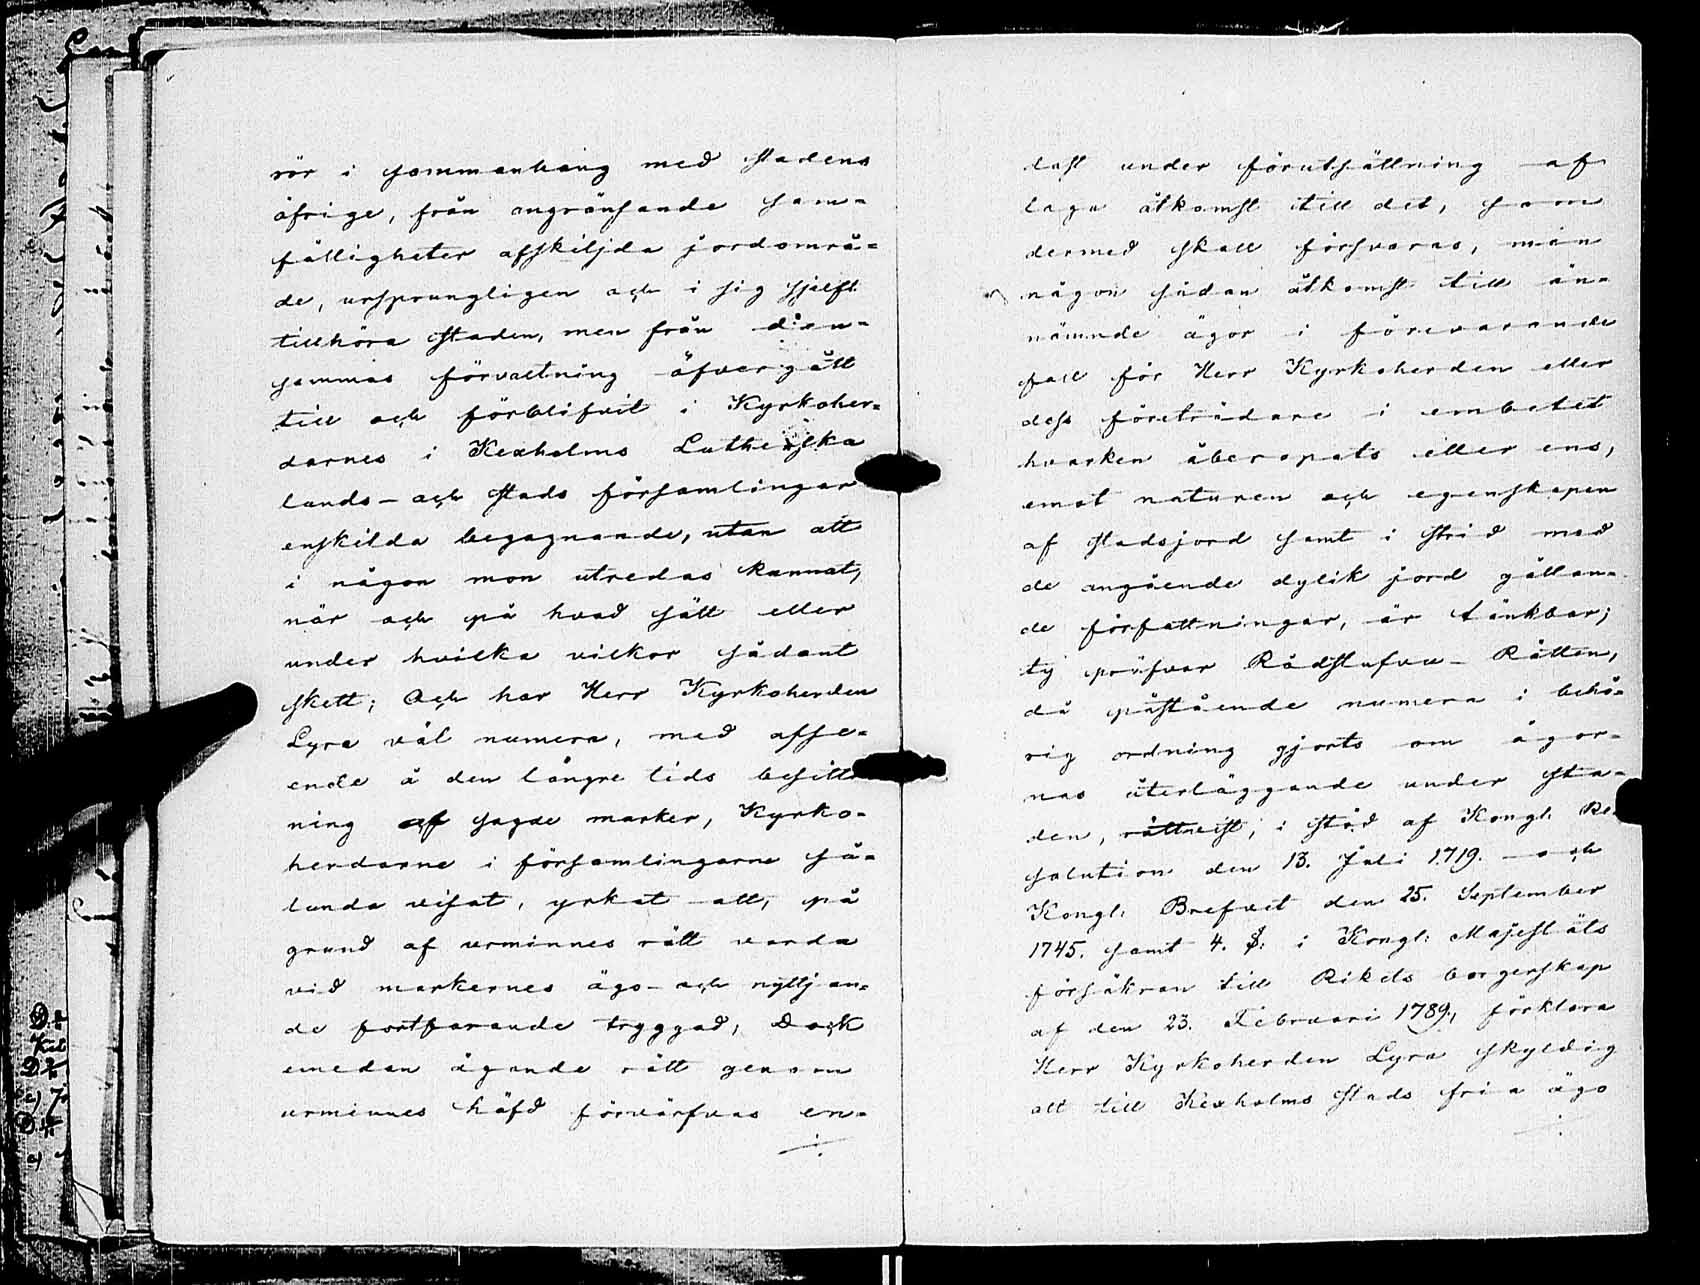 rör i sammanhang med stadens
öfrige, från angränsande sam-
fälligheter afskiljda jordområ-
de, ursprungligen och i sig sjelft
tillhöra staden, men från den-
sammas förvaltning öfvergått
till och förblifvit i Kyrkoher-
darnes i Kexholms Lutherska
lands- och stads församlingar
enskilda begagnande, utan att
i någon mon utredas kunnat,
när och på hvad sätt eller
under hvilka vilkor sådant
skett; Och har Herr Kyrkoherden
Lyra väl numera, med afse-
ende å den längre tids besitt-
ning af sagde marker, Kyrko-
herdarne i församlingarne så-
lunda visat, yrkat att, på
grund af urminnes rätt varda
vid markernes ägo- och nyttjan-
de fortfarande tryggad; Dock
emedan ägande rätt genom
urminnes häfd förvärfvas en-
dast under förutsättning af
laga åtkomst till det, som
dermed skall försvaras, men
någon sådan åtkomst till än-
nämnde ägor i förevarande
fall för Herr Kyrkoherden eller
dess företrädare i embetet
hvarken åberopats eller ens,
emot naturen och egenskapen
af stadsjord samt i strid med
de angående dylik jord gällan-
de författningar, är tänkbar;
ty pröfvar Rådstufvu-Rätten,
då påstående numera i behö-
rig ordning gjorts om ägor-
nas återläggande under sta-
den, rättvist, i stöd af Kongl. Re-
solution den 13. Juli 1719. och
Kongl. Brefvet den 25. September
1745. samt 4. §. i Kongl: Majestäts
försäkran till Rikets borgerskap
af den 23. Februari 1789, förklara
Herr Kyrkoherden Lyra skyldig
att till Kexholms stads fria ägo